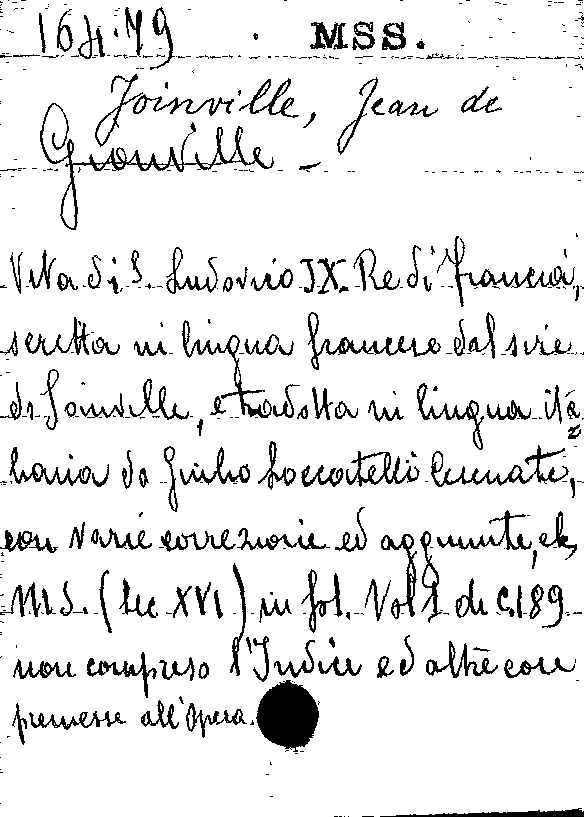 164.79 MSS.
Joinville, Jean de
Gionville -
Vita di S. Ludovico IX. Re di Francia,
scritta in lingua francese dal sire
di Joinville, e tradotta in lingua ita
liana da Giulio Loccatelli Cesenate,
con varie correzioni ed aggiunte, etc,
MS. (Sec XVI) in fol. Vol 1 di C. 189
non compreso l'Indice ed altre cose
premesse all'opera.